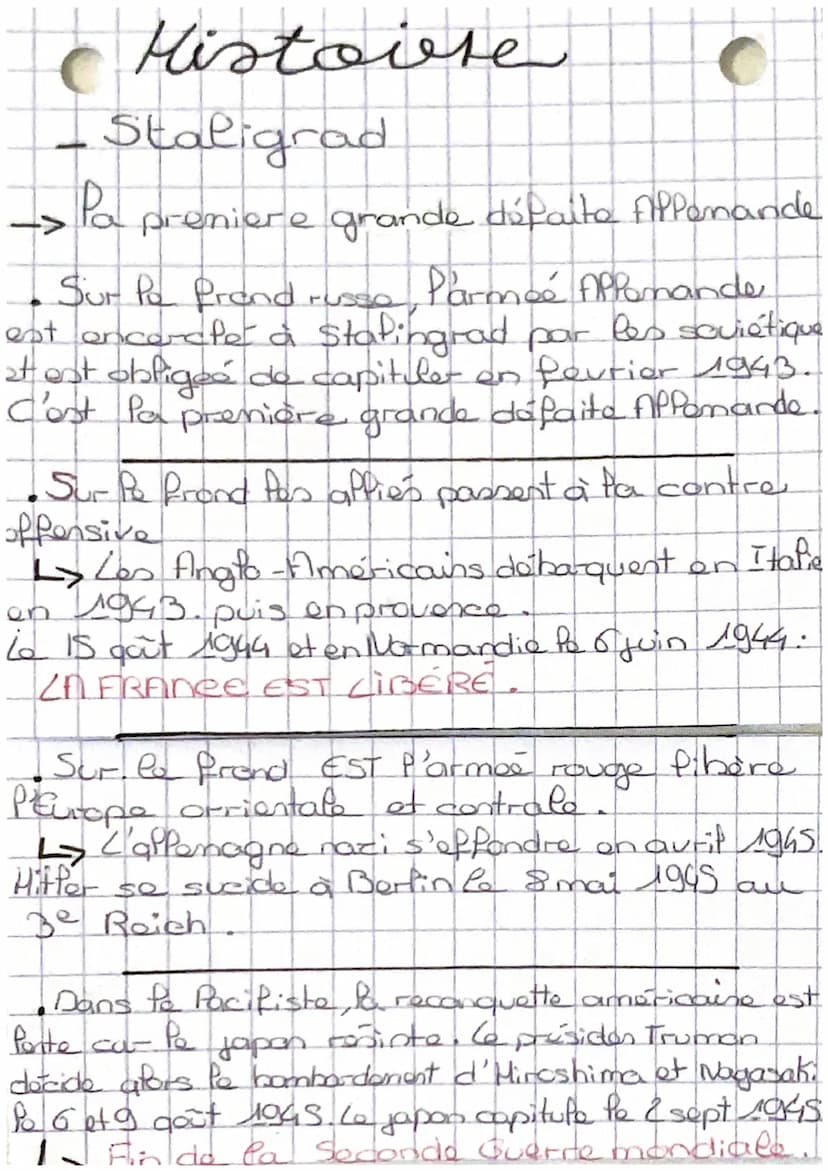 Histoire
- Staligrad
-> la premiere grande défaite Allemande
. Sur le frond russe, l'armeé Allemande
est encercler à Stalingrad par les soviétique
et est obligeé de capituler en fevrier 1943.
C'est la première grande défaite Allemande.
. Sur le frond les alliés passent à la contre
offensive
↳ Les Anglo-Américains débarquent en Italie
en 1943. puis en provence.
le 15 août 1944 et en Normandie le 6 juin 1944.
LA FRANCE EST LIBÉRÉ.
. Sur le frond EST l'armeé rouge libère
l'Europe orrientale et contrale.
↳ L'allemagne nazi s'effondre en avril 1945
Hitler se sucide à Berlin le 8 mai 1945 au
3e Reich.
. Dans le Pacifiste, la reconquette américaine est
lente car le japon résiste. Le présiden Truman
décide alors le bombardement d'Hiroshima et Nagasaki
le 6 et 9 août 1945. Le japon capitule le 2 sept 1945
↳ Fin de la Seconde Guerre mondiale.